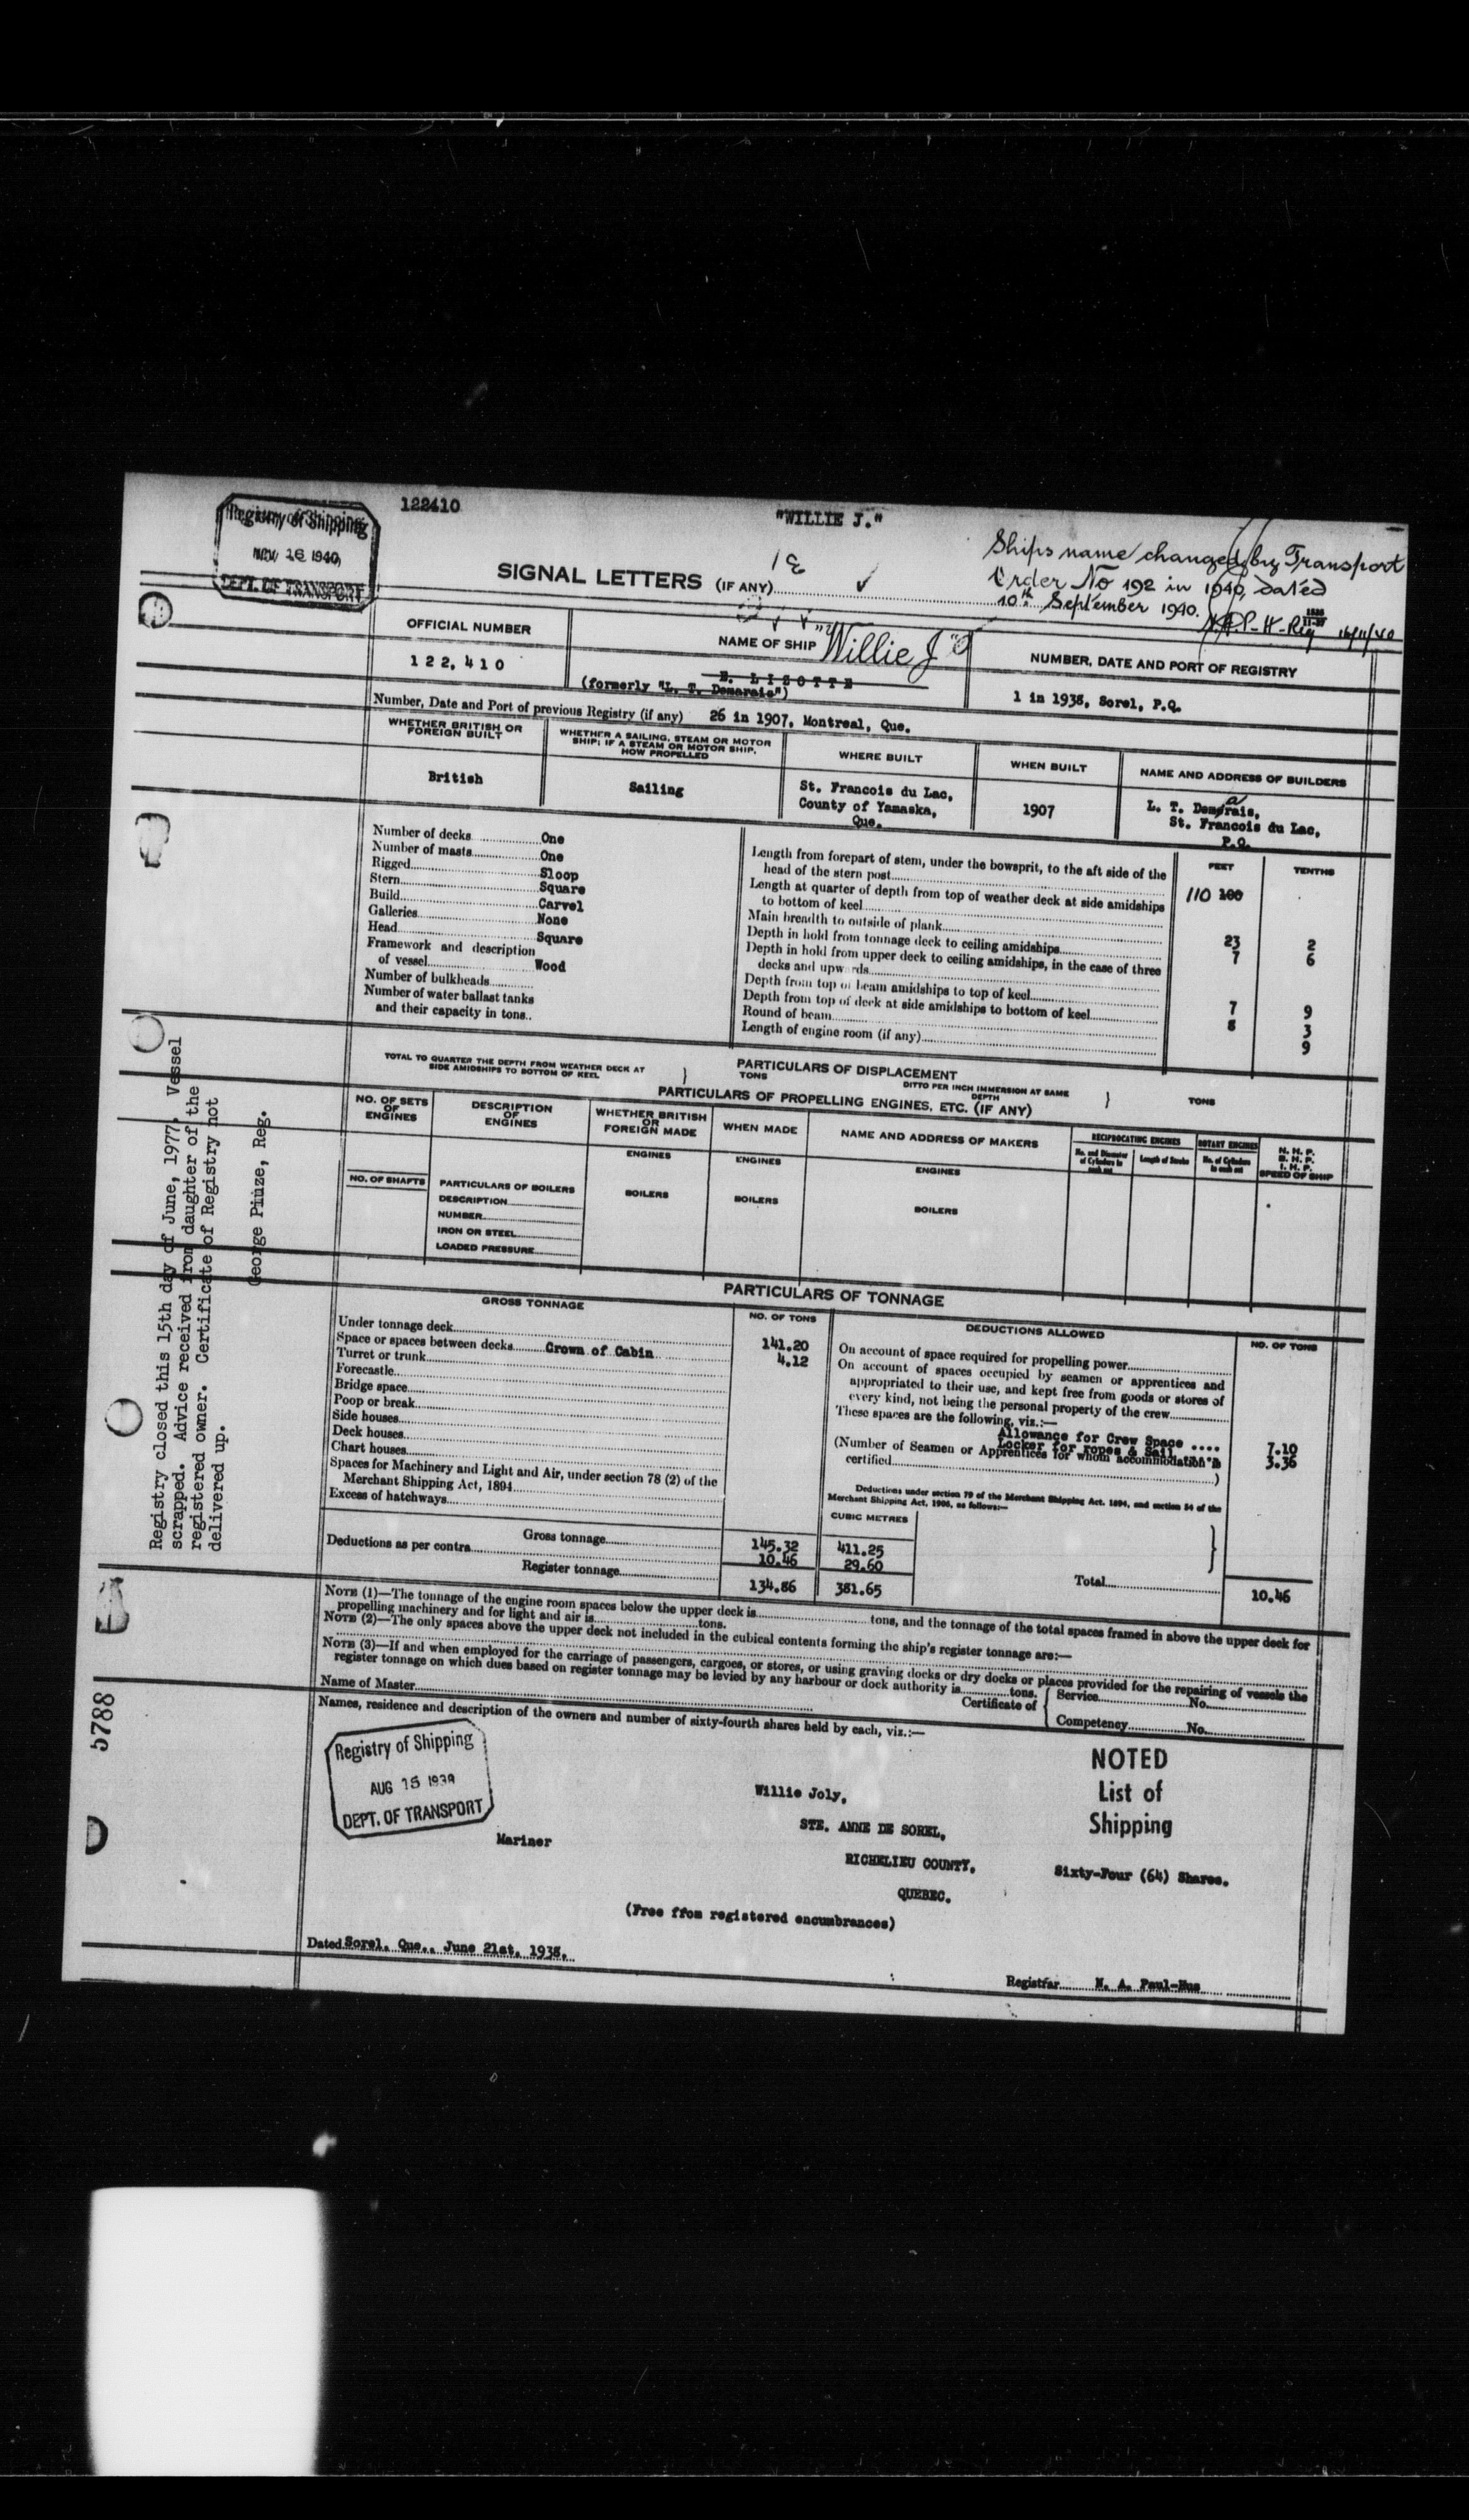 122410
"WILLIE J."
Registry of Shipping
NOV 16 1940
DEPT. OF TRANSPORT
SIGNAL LETTERS (IF ANY)
Ships name changed by Transport
Order No 192 in 1940, dated
10th September 1940.
16/11/40
OFFICIAL NUMBER
122,410
NAME OF SHIP "Willie J"
E. LIZOTTE
(formerly "L. T. Demarais")
NUMBER, DATE AND PORT OF REGISTRY
1 in 1938, Sorel, P.Q.
Number, Date and Port of previous Registry (if any) 26 in 1907, Montreal, Que.
WHETHER BRITISH OR FOREIGN BUILT
British
WHETHER A SAILING, STEAM OR MOTOR SHIP; IF A STEAM OR MOTOR SHIP, HOW PROPELLED
Sailing
WHERE BUILT
St. Francois du Lac,
County of Yamaska,
Que.
WHEN BUILT
1907
NAME AND ADDRESS OF BUILDERS
L. T. Demarais,
St. Francois du Lac,
P.Q.
Number of decks One
Number of masts One
Rigged Sloop
Stern Square
Build Carvel
Galleries None
Head Square
Framework and description
of vessel Wood
Number of bulkheads
Number of water ballast tanks
and their capacity in tons
FEET TENTHS
Length from forepart of stem, under the bowsprit, to the aft side of the
head of the stern post 110 100
Length at quarter of depth from top of weather deck at side amidships
to bottom of keel
Main breadth to outside of plank 23 2
Depth in hold from tonnage deck to ceiling amidships 7 6
Depth in hold from upper deck to ceiling amidships, in the case of three
decks and upwards
Depth from top of beam amidships to top of keel 7 9
Depth from top of deck at side amidships to bottom of keel 8 3
Round of beam 9
Length of engine room (if any)
PARTICULARS OF DISPLACEMENT
TOTAL TO QUARTER THE DEPTH FROM WEATHER DECK AT SIDE AMIDSHIPS TO BOTTOM OF KEEL } TONS
DITTO PER INCH IMMERSION AT SAME DEPTH } TONS
PARTICULARS OF PROPELLING ENGINES, ETC. (IF ANY)
NO. OF SETS OF ENGINES
DESCRIPTION OF ENGINES
WHETHER BRITISH OR FOREIGN MADE
WHEN MADE
NAME AND ADDRESS OF MAKERS
RECIPROCATING ENGINES
No. and Diameter of Cylinders in each set
Length of Stroke
ROTARY ENGINES
No. of Cylinders in each set
N. H. P.
B. H. P.
I. H. P.
SPEED OF SHIP
ENGINES ENGINES ENGINES
NO. OF SHAFTS
PARTICULARS OF BOILERS
DESCRIPTION
NUMBER
IRON OR STEEL
LOADED PRESSURE
BOILERS BOILERS BOILERS
PARTICULARS OF TONNAGE
GROSS TONNAGE NO. OF TONS
Under tonnage deck 141.20
Space or spaces between decks Crown of Cabin 4.12
Turret or trunk
Forecastle
Bridge space
Poop or break
Side houses
Deck houses
Chart houses
Spaces for Machinery and Light and Air, under section 78 (2) of the
Merchant Shipping Act, 1894
Excess of hatchways
CUBIC METRES
Gross tonnage 145.32 411.25
Deductions as per contra 10.46 29.60
Register tonnage 134.86 381.65
DEDUCTIONS ALLOWED NO. OF TONS
On account of space required for propelling power
On account of spaces occupied by seamen or apprentices and
appropriated to their use, and kept free from goods or stores of
every kind, not being the personal property of the crew
These spaces are the following, viz.:—
Allowance for Crew Space .... 7.10
Locker for ropes & Sail 3.36
(Number of Seamen or Apprentices for whom accommodation is
certified )
Deductions under section 79 of the Merchant Shipping Act, 1894, and section 54 of the
Merchant Shipping Act, 1906, as follows:—
Total 10.46
NOTE (1)—The tonnage of the engine room spaces below the upper deck is tons, and the tonnage of the total spaces framed in above the upper deck for
propelling machinery and for light and air is tons.
NOTE (2)—The only spaces above the upper deck not included in the cubical contents forming the ship's register tonnage are:—
NOTE (3)—If and when employed for the carriage of passengers, cargoes, or stores, or using graving docks or dry docks or places provided for the repairing of vessels the
register tonnage on which dues based on register tonnage may be levied by any harbour or dock authority is tons.
Name of Master
Certificate of { Service No.
Competency No.
Names, residence and description of the owners and number of sixty-fourth shares held by each, viz.:—
Registry of Shipping
AUG 15 1939
DEPT. OF TRANSPORT
NOTED
List of
Shipping
Willie Joly,
STE. ANNE DE SOREL,
Mariner
RICHELIEU COUNTY,
Sixty-Four (64) Shares.
QUEBEC.
(Free ffom registered encumbrances)
Dated Sorel, Que., June 21st, 1938.
Registrar N. A. Paul-Hus
Registry closed this 15th day of June, 1977. Vessel
scrapped. Advice received from daughter of the
registered owner. Certificate of Registry not
delivered up.
George Piuze, Reg.
5788